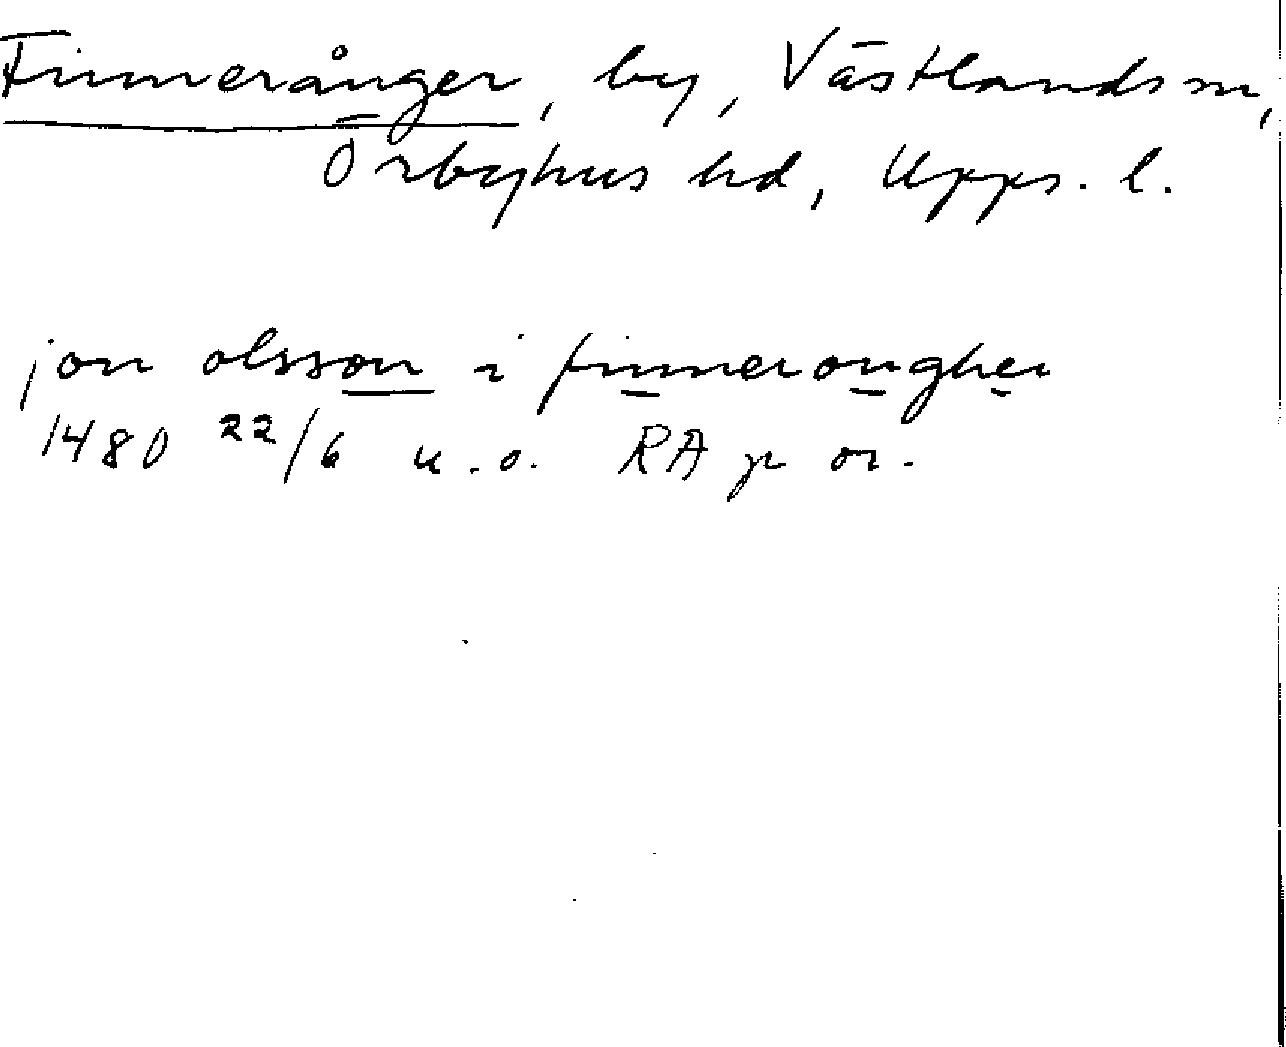 Finnerånger, by, Västlands sn,
Örbyhus hd, Upps. l.
jon olsson i finnerongher
1480 22/6 u.o. RA p or.